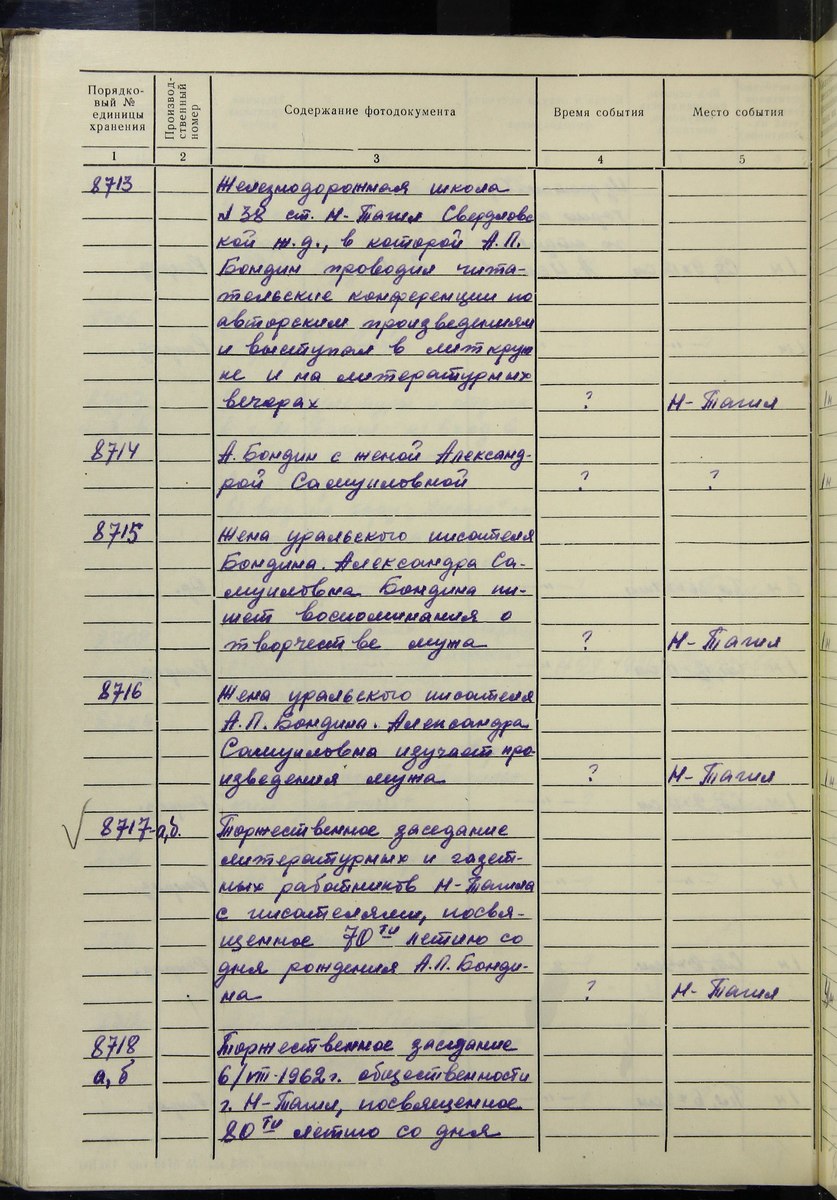 Порядко-
вый №
единицы
хранения
Производ-
ственный
номер
Содержание фотодокумента
Время события
Место события
1 2 3 4 5
8713 Железнодорожная школа
№ 38 ст. Н-Тагил Свердловс
кой ж.д., в которой А.П.
Бондин проводил чита-
тельские конференции по
авторским произведениям
и выступал в литкруж
ке и на литературных
вечерах ? Н-Тагил
8714 А. Бондин с женой Александ-
рой Самуиловной ? ?
8715 Жена уральского писателя
Бондина. Александра Са-
муиловна Бондина пи-
шет воспоминания о
творчестве мужа ? Н-Тагил
8716 Жена уральского писателя
А.П. Бондина. Александра
Самуиловна изучает про-
изведения мужа ? Н-Тагил
8717-а,б. Торжественное заседание
литературных и газет-
ных работников Н-Тагила
с писателями, посвя-
щенное 70ти летию со
дня рождения А.П. Бонди-
на ? Н-Тагил
8718 Торжественное заседание
а, б 6/VIII-1962 г. общественности
г. Н-Тагил, посвященное
80ти летию со дня